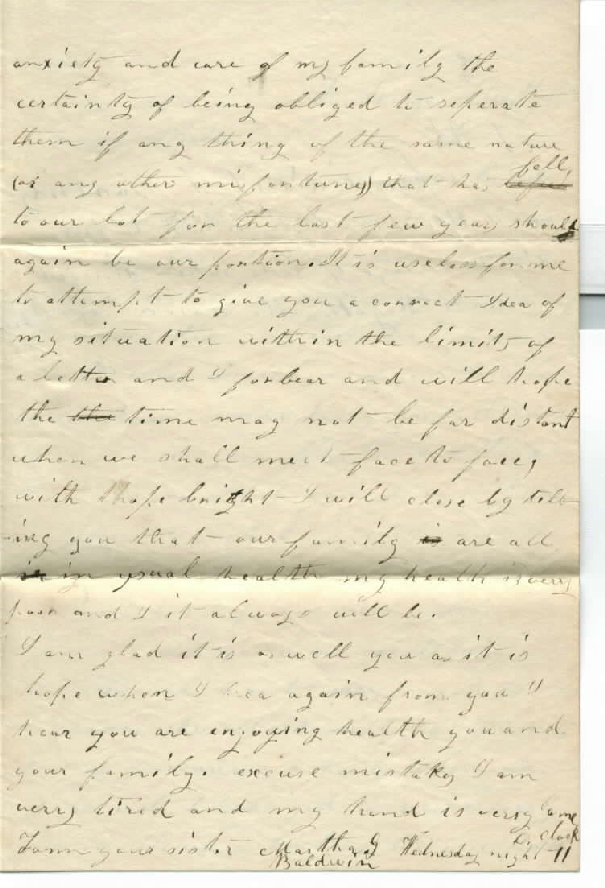 anxiety and care of my family the
certainty of being obliged to seperate
them if any thing of the same nature
fell,
(or any other misfortune) that has
to our lot for the last few years should
again be our portion. It is useless for me
to attempt to give you a correct Idea of
my situation within the limits of
a letter and I forbear and will hope
the the time may not be far distant
when we shall meet face to face,
with hope bright I will close by tell
-ing you that our family is are all
in in usual health my health is very
poor and I it always will be.
I am glad it is as well you as it is
hope when I hea again from you I
hear you are enjoying health you and
your family. excuse mistakes I am
very tired and my hand is very lame
I am your sister Martha G Wednesday night 11
O, clock
Baldwin